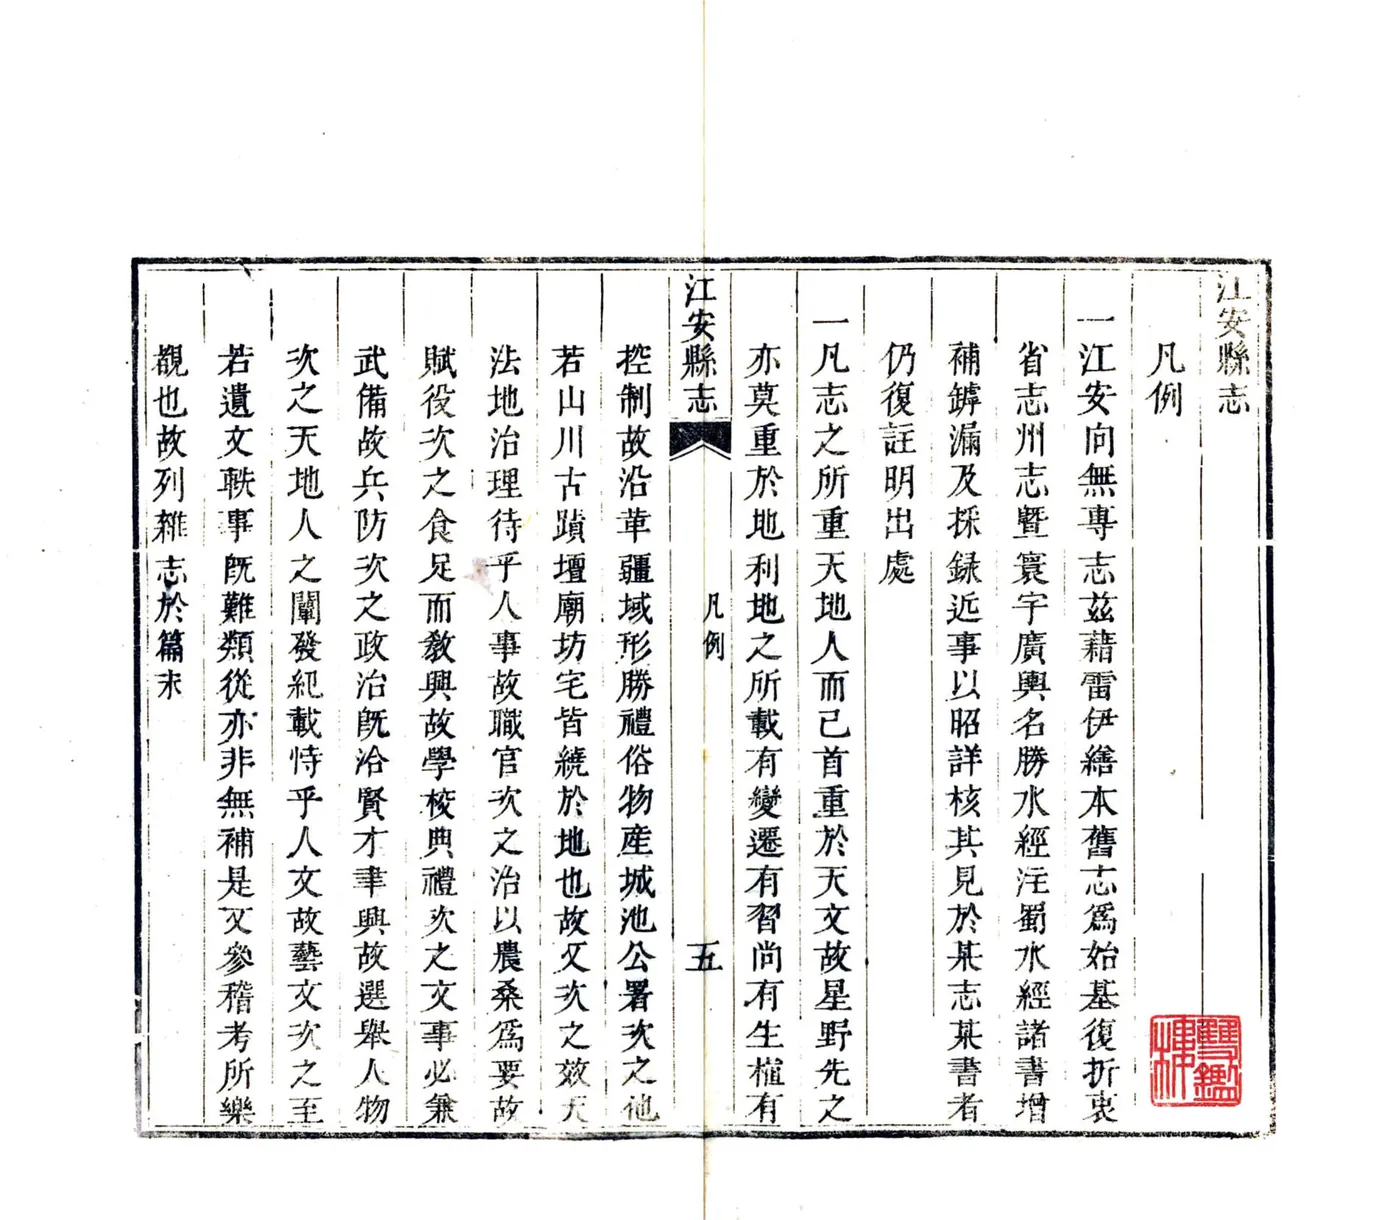 江安縣志
凡例
一江安向無專志茲藉雷伊繕本舊志爲始基復折衷
省志州志曁寰宇廣輿名勝水經注蜀水經諸書增
補罅漏及採録近事以昭詳核其見於某志某書者
仍復註明出處
一凡志之所重天地人而己首重於天文故星野先之
亦莫重於地利地之所載有變遷有習尚有生植有
江安縣志
凡例
五
控制故沿革疆域形勝禮俗物産城池公署次之他
若山川古蹟壇廟坊宅皆繞於地也故又次之效天
法地治理待乎人事故職官次之治以農桑爲要故
賦役次之食足而教興故學校典禮次之文事必兼
武備故兵防次之政治旣洽賢才聿興故選舉人物
次之天地人之闡發紀載恃乎人文故藝文次之至
若遺文軼事旣難類從亦非無補是又參稽考所樂
覩也故列雜志於篇末
雙鑑樓